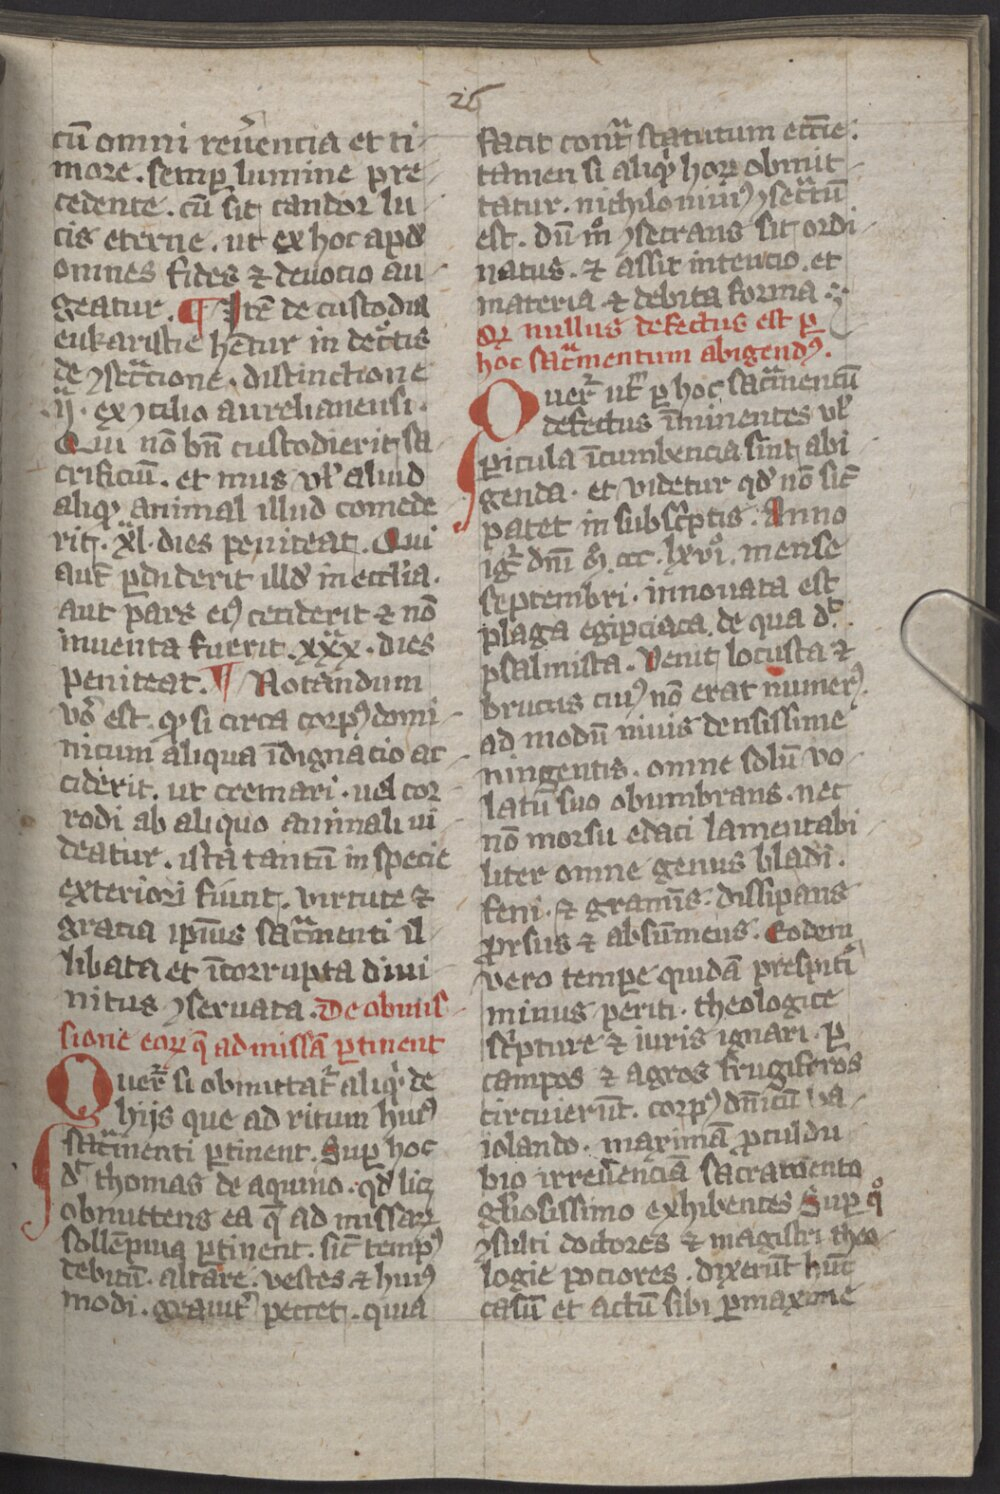 26
cū omni reu̾encia et ti
more. semꝑ lumine pre
cedente. cū sit candor lu
cis eterne. ut ex hoc apd̾
omnes fides ⁊ deuocio au
geatur. ¶ Itē de custodia
eukaristie hētur in dec̾tis
de ꝯsec̾cione. distinctione
ij. ex ꝯcilio aurelianensi.
Qui nō bn̄ custodierit sa
crificiū. et mus vl̾ aliud
aliqḋ animal illud comede
rit. xl. dies peniteat. Qui
aut̄ ꝑdiderit illd̾ in eccl̾ia.
aut pars eiꝰ ceciderit ⁊ nō
inuenta fuerit. xxx. dies
peniteat. ¶ Notandum
vo̾ est. qḋ si circa corpꝰ domi
nicum aliqua īdignacio ac
ciderit. ut cremari. uel cor
rodi ab aliquo animali ui
deatur. ista tantū in specie
exteriori fiunt. virtute ⁊
gracia ipsius sac̾menti il
libata et īcorrupta diui
nitus ꝯseruata. De obmis
sione eoꝝ q̄ ad missā ꝑtinent
Quer̾ si obmittat̾ aliqḋ de
hijs que ad ritum huiꝰ
sac̾menti ꝑtinent. Suꝑ hoc
d̾t thomas de aquino. qd̾ licꝫ
obmittens ea q̄ ad missaꝝ
sollēpnia ꝑtinent. sic̄ tempꝰ
debitū. altare. vestes ⁊ huiꝰ
modi. grauit̾ peccet. quia
facit cont̾ statutum ecc̄ie:
tamen si aliqḋ hoꝝ obmit
tatur. nichilominꝰ ꝯsec̾tū
est. dū mͦ ꝯsecrans sit ordi
natus. ⁊ assit intencio. et
materia ⁊ debita forma.
Qḋ nullus defectus est ꝑ
hoc sac̾mentum abigendꝰ.
Quer̾ ut̾ ꝑ hoc sac̾mentū
defectus īminentes vl̾
ꝑicula īcumbencia sint abi
genda. et videtur qd̾ nō sic̄
patet in subsc̾ptis. Anno
ig̾ dn̄i M. ccc. lxviͦ. mense
septembri. innouata est
plaga egipciaca. de qua d̾t.
psalmista. Venit locusta ⁊
brucus cuiꝰ nō erat numerꝰ.
ad modū niuis densissime
ningentis. omne solū vo
latu suo obumbrans. nec
nō morsu edaci lamentabi
liter omne genus bladi.
feni. ⁊ gramīs. dissipans
ꝓrsus ⁊ absūmens. Eodem
vero tempe quidā prespit̾i
minus periti. theologice
sc̾pture ⁊ iuris ignari. ꝑ
campos ⁊ agros frugiferos
circuierūt. corpꝰ dn̄icū ba
iolando. maximā ꝓculdu
bio irreu̾enciā sacramento
gl̾iosissimo exhibentes Suꝑ qͦ
ꝯsulti doctores ⁊ magistri theo
logie pociores. dixerūt hūc
casū et actū sibi ꝑmaxime